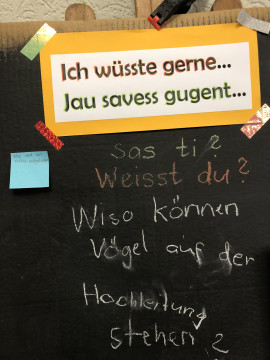 Ich wüsste gerne...
Jau savess gugent...
sas ti?
Weisst du?
Wiso können
Vögel auf der
Hochleitung
stehen?